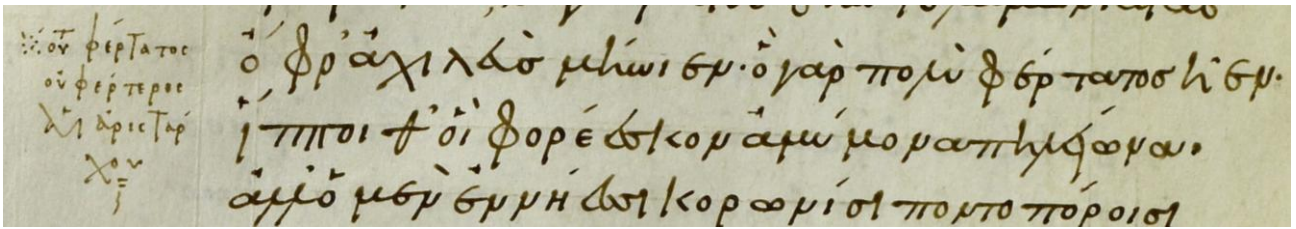 οὕτ φέρτατος
οὐ φέρτερος
αἱ ἀριστάρ
χου
ὄφρ' ἀχιλεὺσ μήνιεν· ὃ γὰρ πολὺ φέρτατοσ ἦεν·
ἵπποι θ' οἳ φορέεσκον ἀμύμονα πηλείωνα·
ἀλλ' ὃ μὲν ἐν νήεσσι κορωνίσι ποντοπόροισι